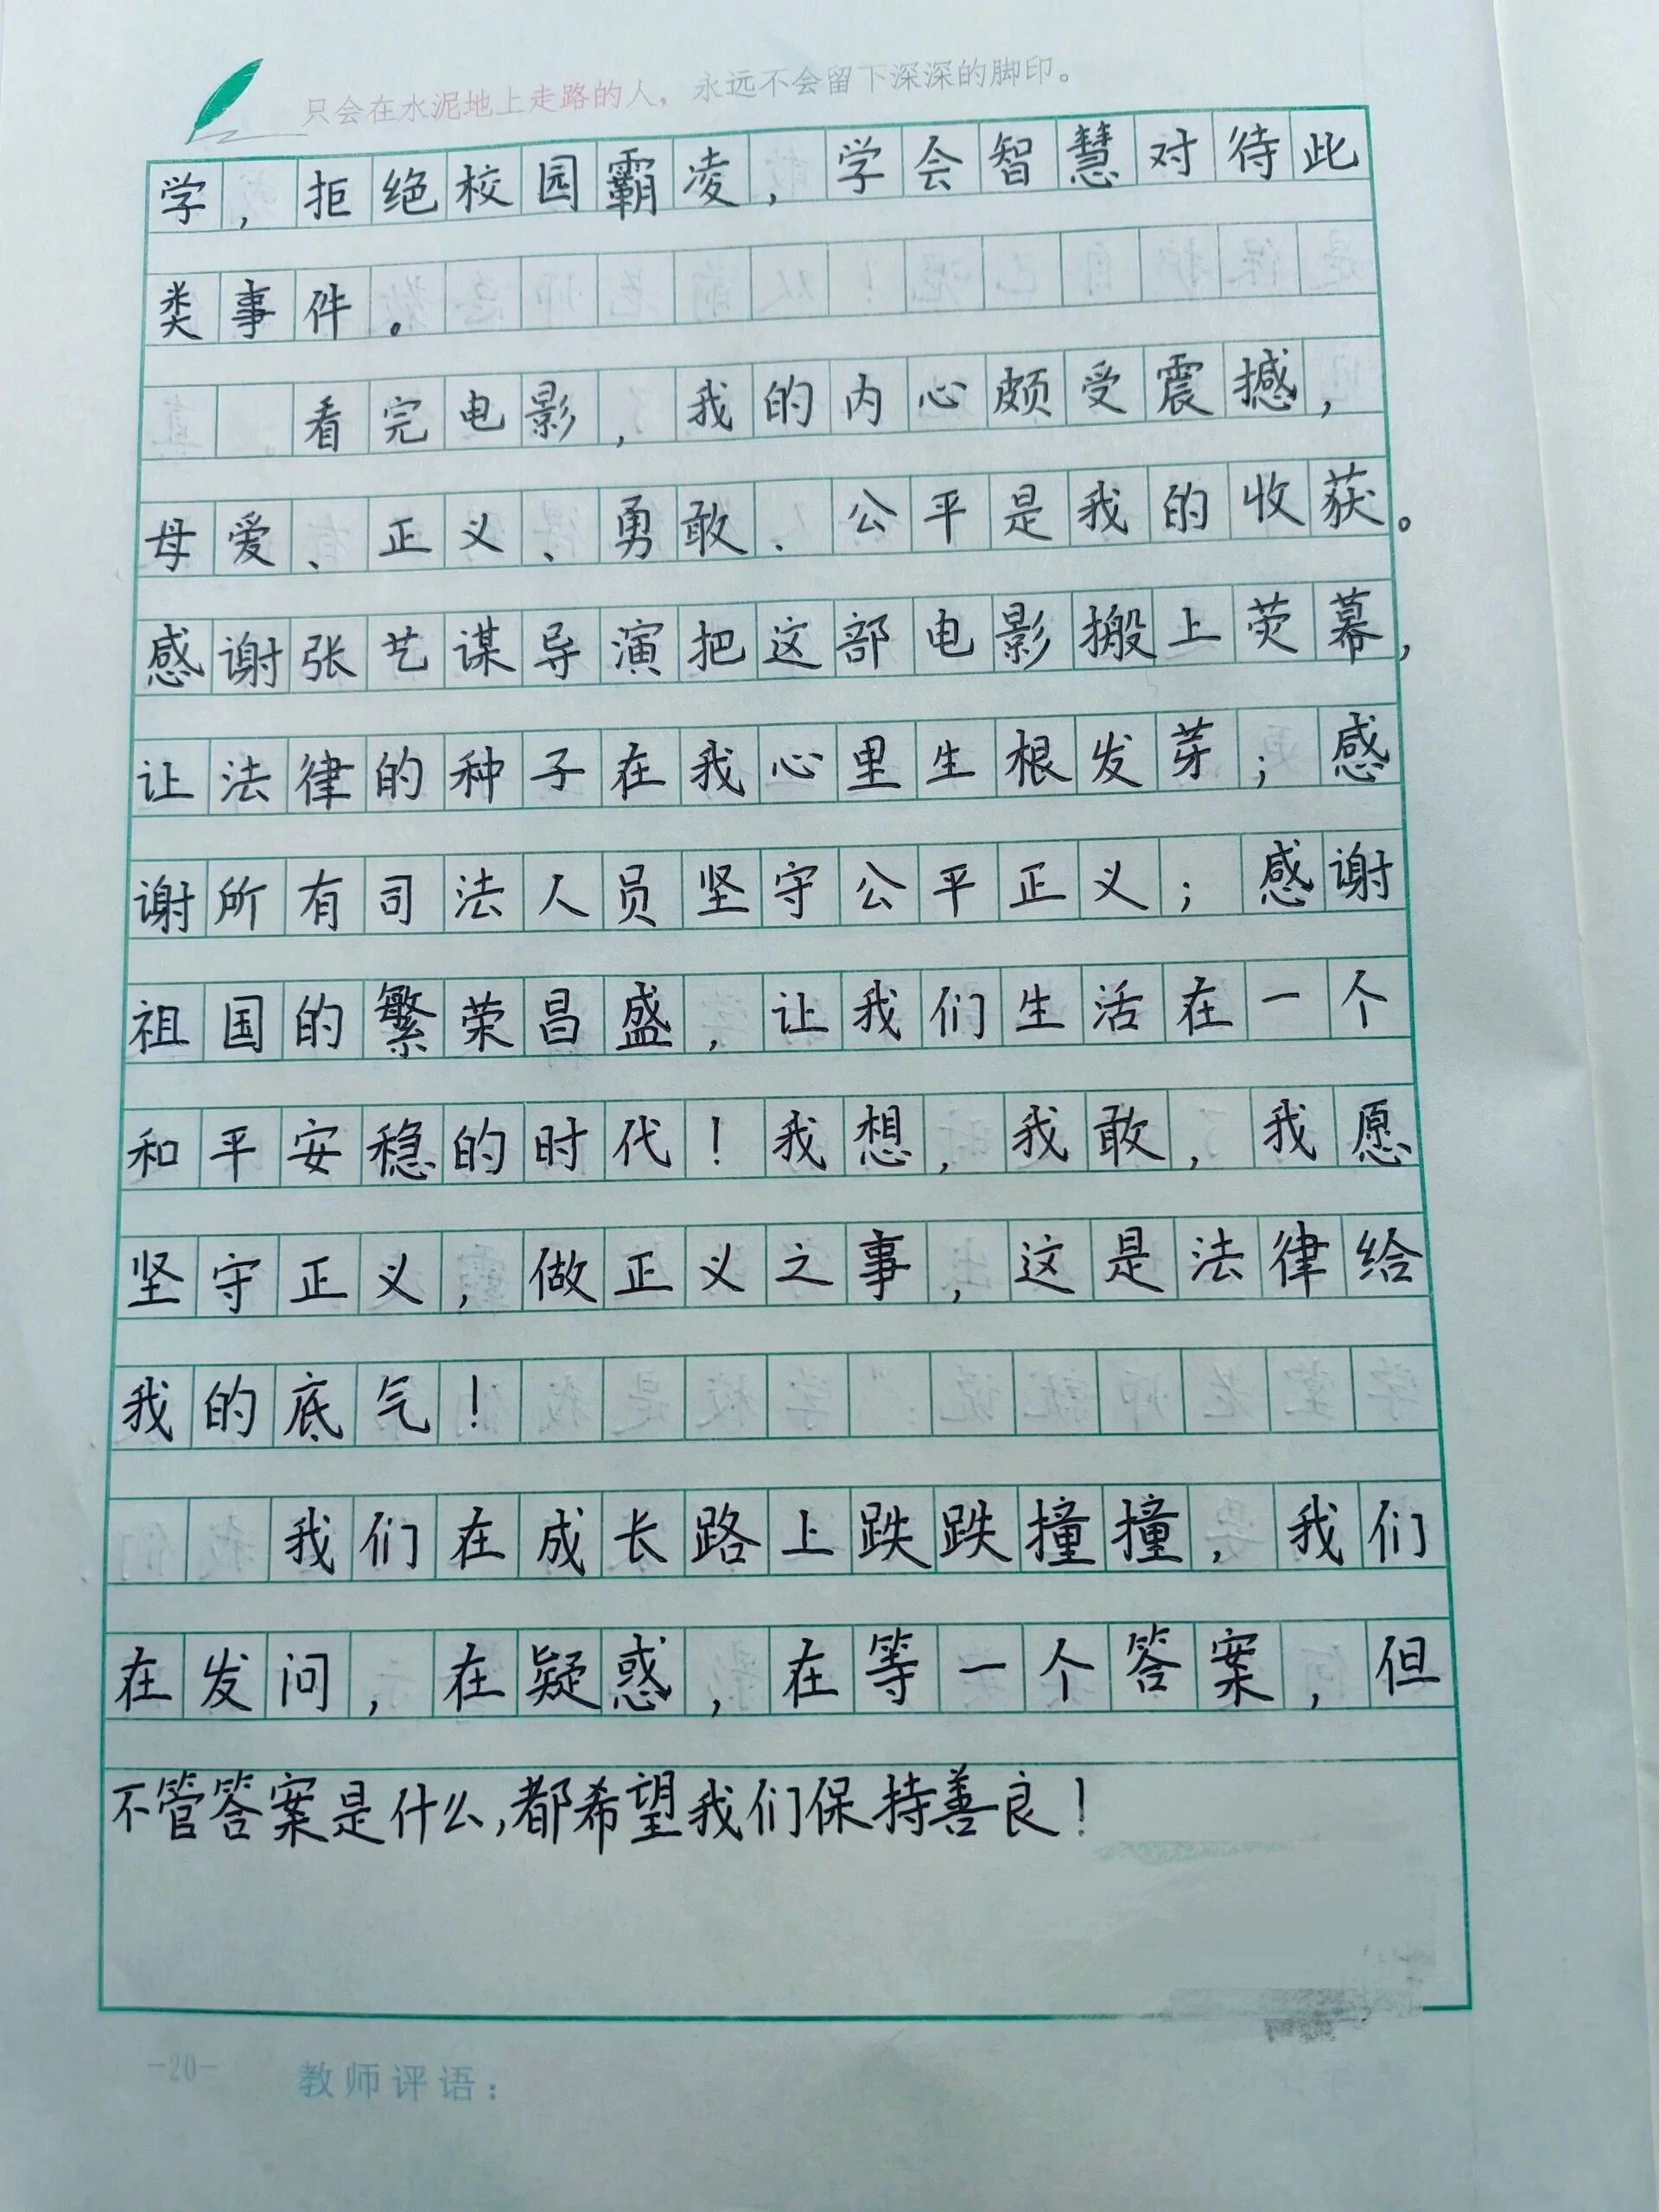 只会在水泥地上走路的人，永远不会留下深深的脚印。
学，拒绝校园霸凌，学会智慧对待此
类事件。
看完电影，我的内心颇受震撼，
母爱、正义、勇敢、公平是我的收获。
感谢张艺谋导演把这部电影搬上荧幕，
让法律的种子在我心里生根发芽；感
谢所有司法人员坚守公平正义；感谢
祖国的繁荣昌盛，让我们生活在一个
和平安稳的时代！我想，我敢，我愿
坚守正义，做正义之事，这是法律给
我的底气！
我们在成长路上跌跌撞撞，我们
在发问，在疑惑，在等一个答案，但
不管答案是什么，都希望我们保持善良！
-20- 教师评语：